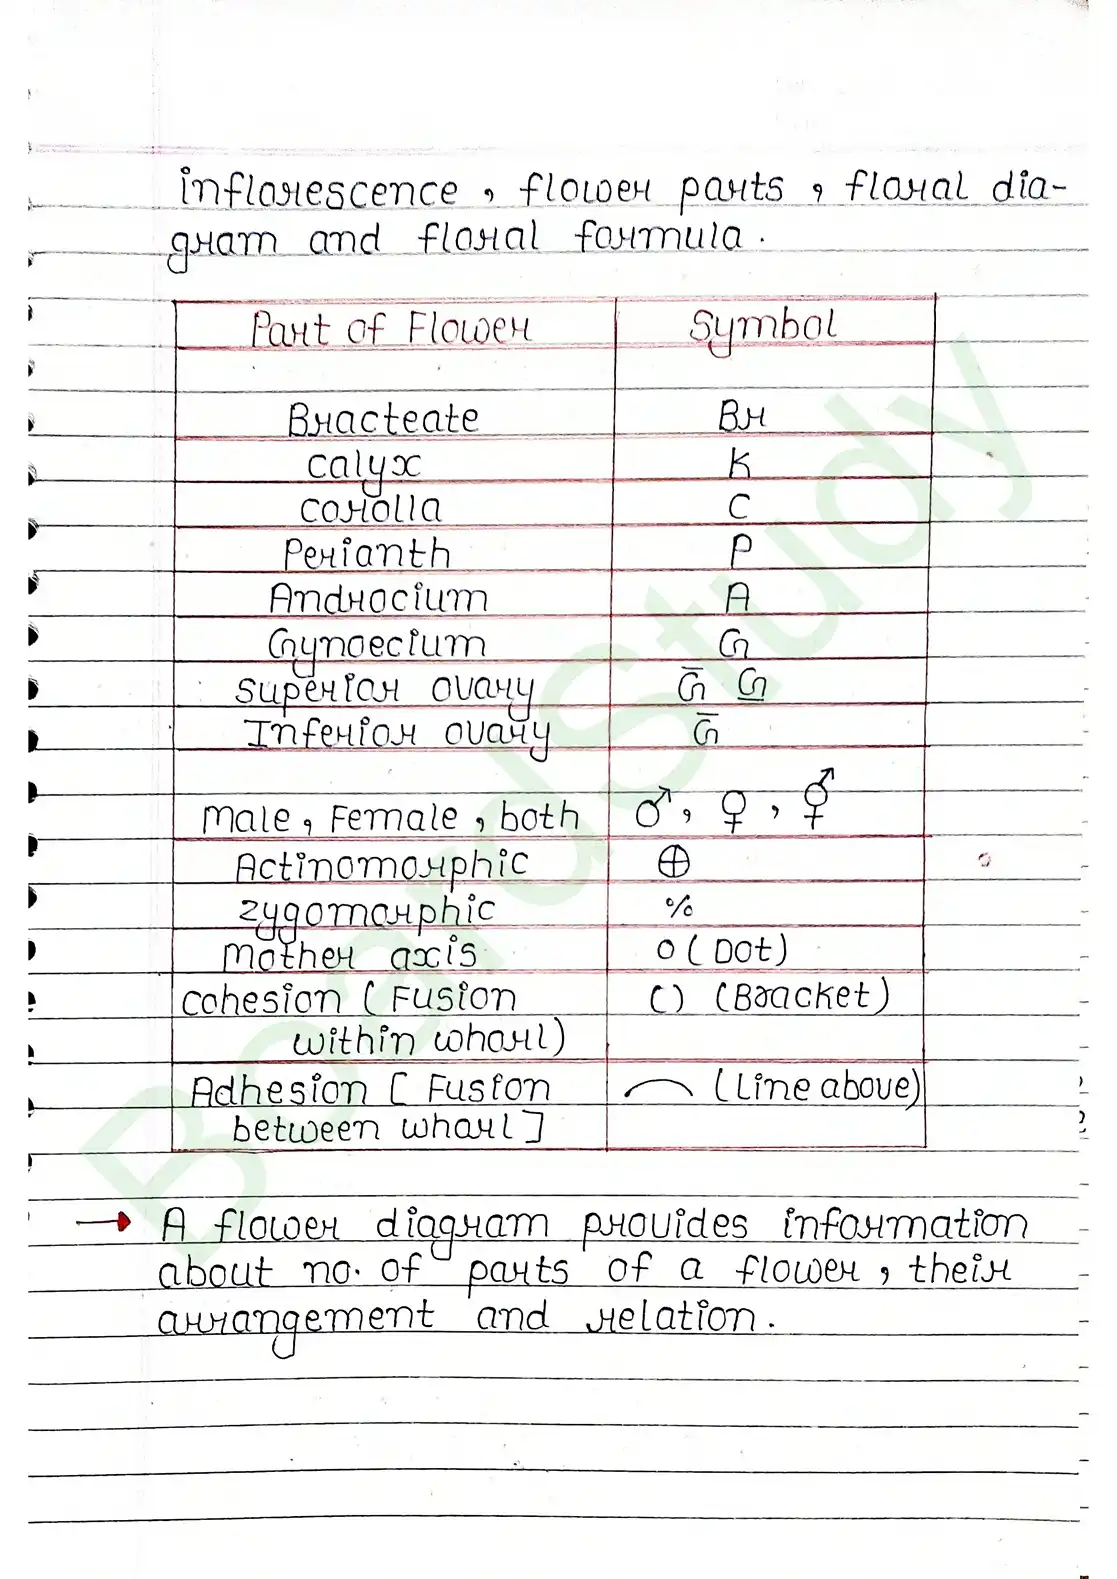 inflorescence, flower parts, floral dia-
gram and floral formula.
Part of Flower Symbol
Bracteate Br
calyx K
corolla C
Perianth P
Androcium A
Gynoecium G
superior ovary G̅ G̲
Inferior ovary G̅
Male, Female, both ♂, ♀, ⚥
Actinomorphic ⊕
zygomorphic %
Mother axis o (Dot)
Cohesion (Fusion () (Bracket)
within whorl)
Adhesion [Fusion ⌒ (Line above)
between whorl]
→ A flower diagram provides information
about no. of parts of a flower, their
arrangement and relation.
BoardStudy